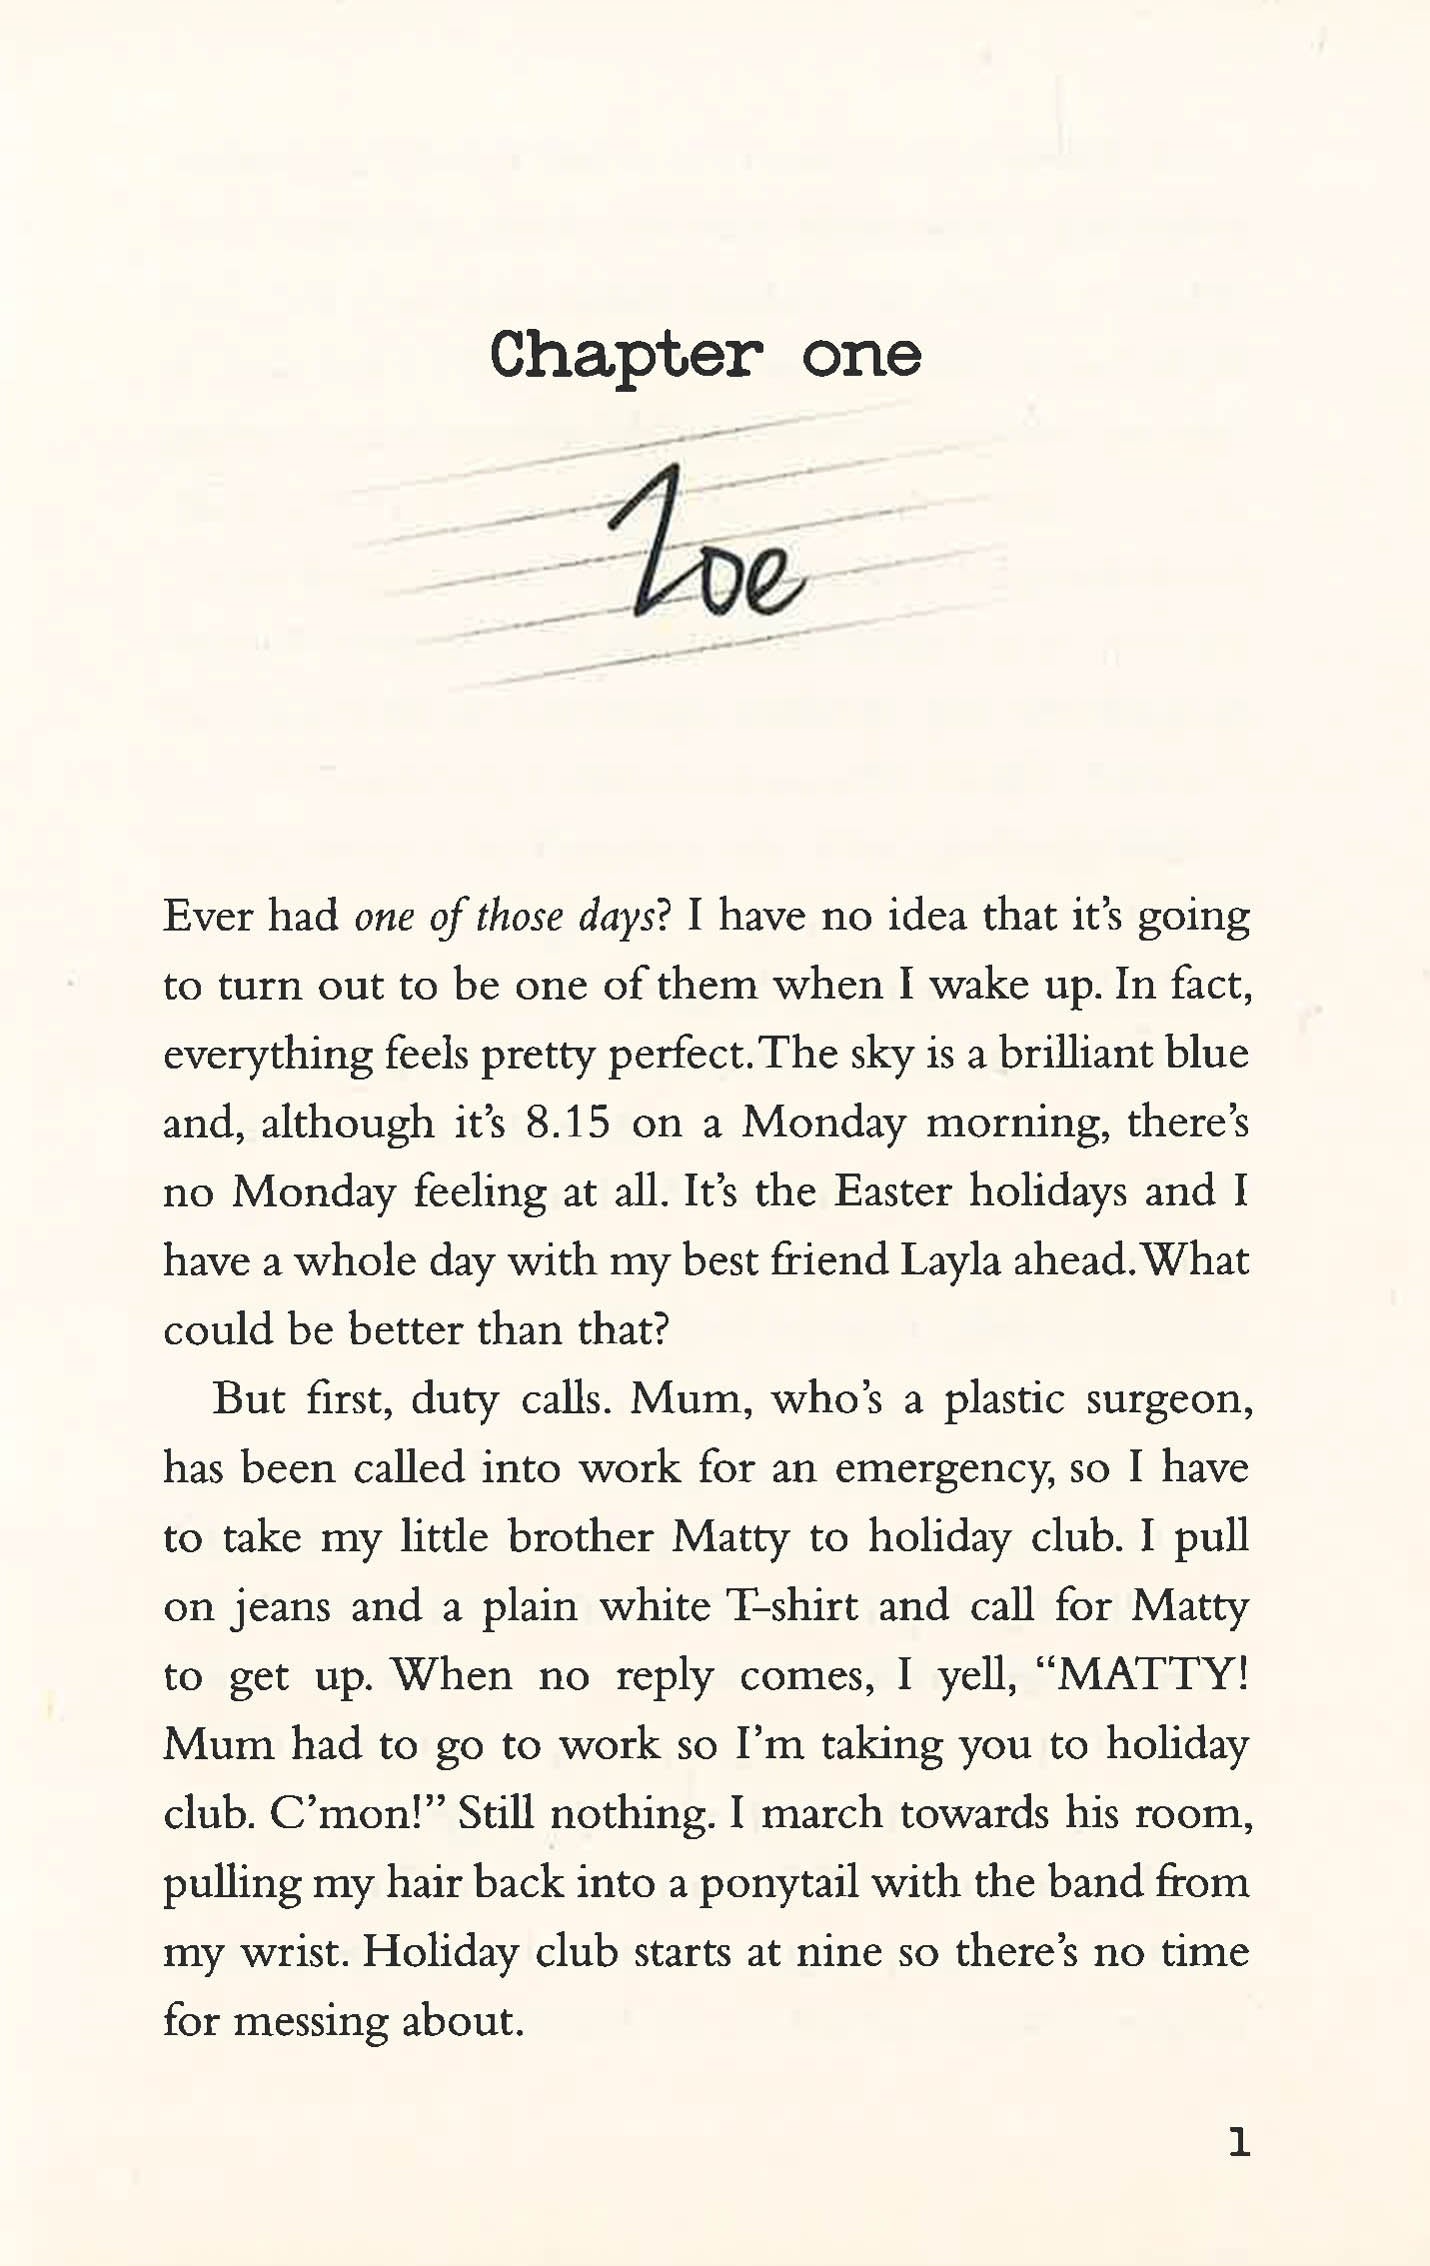 Chapter one
Zoe
Ever had one of those days? I have no idea that it's going
to turn out to be one of them when I wake up. In fact,
everything feels pretty perfect. The sky is a brilliant blue
and, although it's 8.15 on a Monday morning, there's
no Monday feeling at all. It's the Easter holidays and I
have a whole day with my best friend Layla ahead. What
could be better than that?
But first, duty calls. Mum, who's a plastic surgeon,
has been called into work for an emergency, so I have
to take my little brother Matty to holiday club. I pull
on jeans and a plain white T-shirt and call for Matty
to get up. When no reply comes, I yell, “MATTY!
Mum had to go to work so I'm taking you to holiday
club. C'mon!” Still nothing. I march towards his room,
pulling my hair back into a ponytail with the band from
my wrist. Holiday club starts at nine so there's no time
for messing about.
1